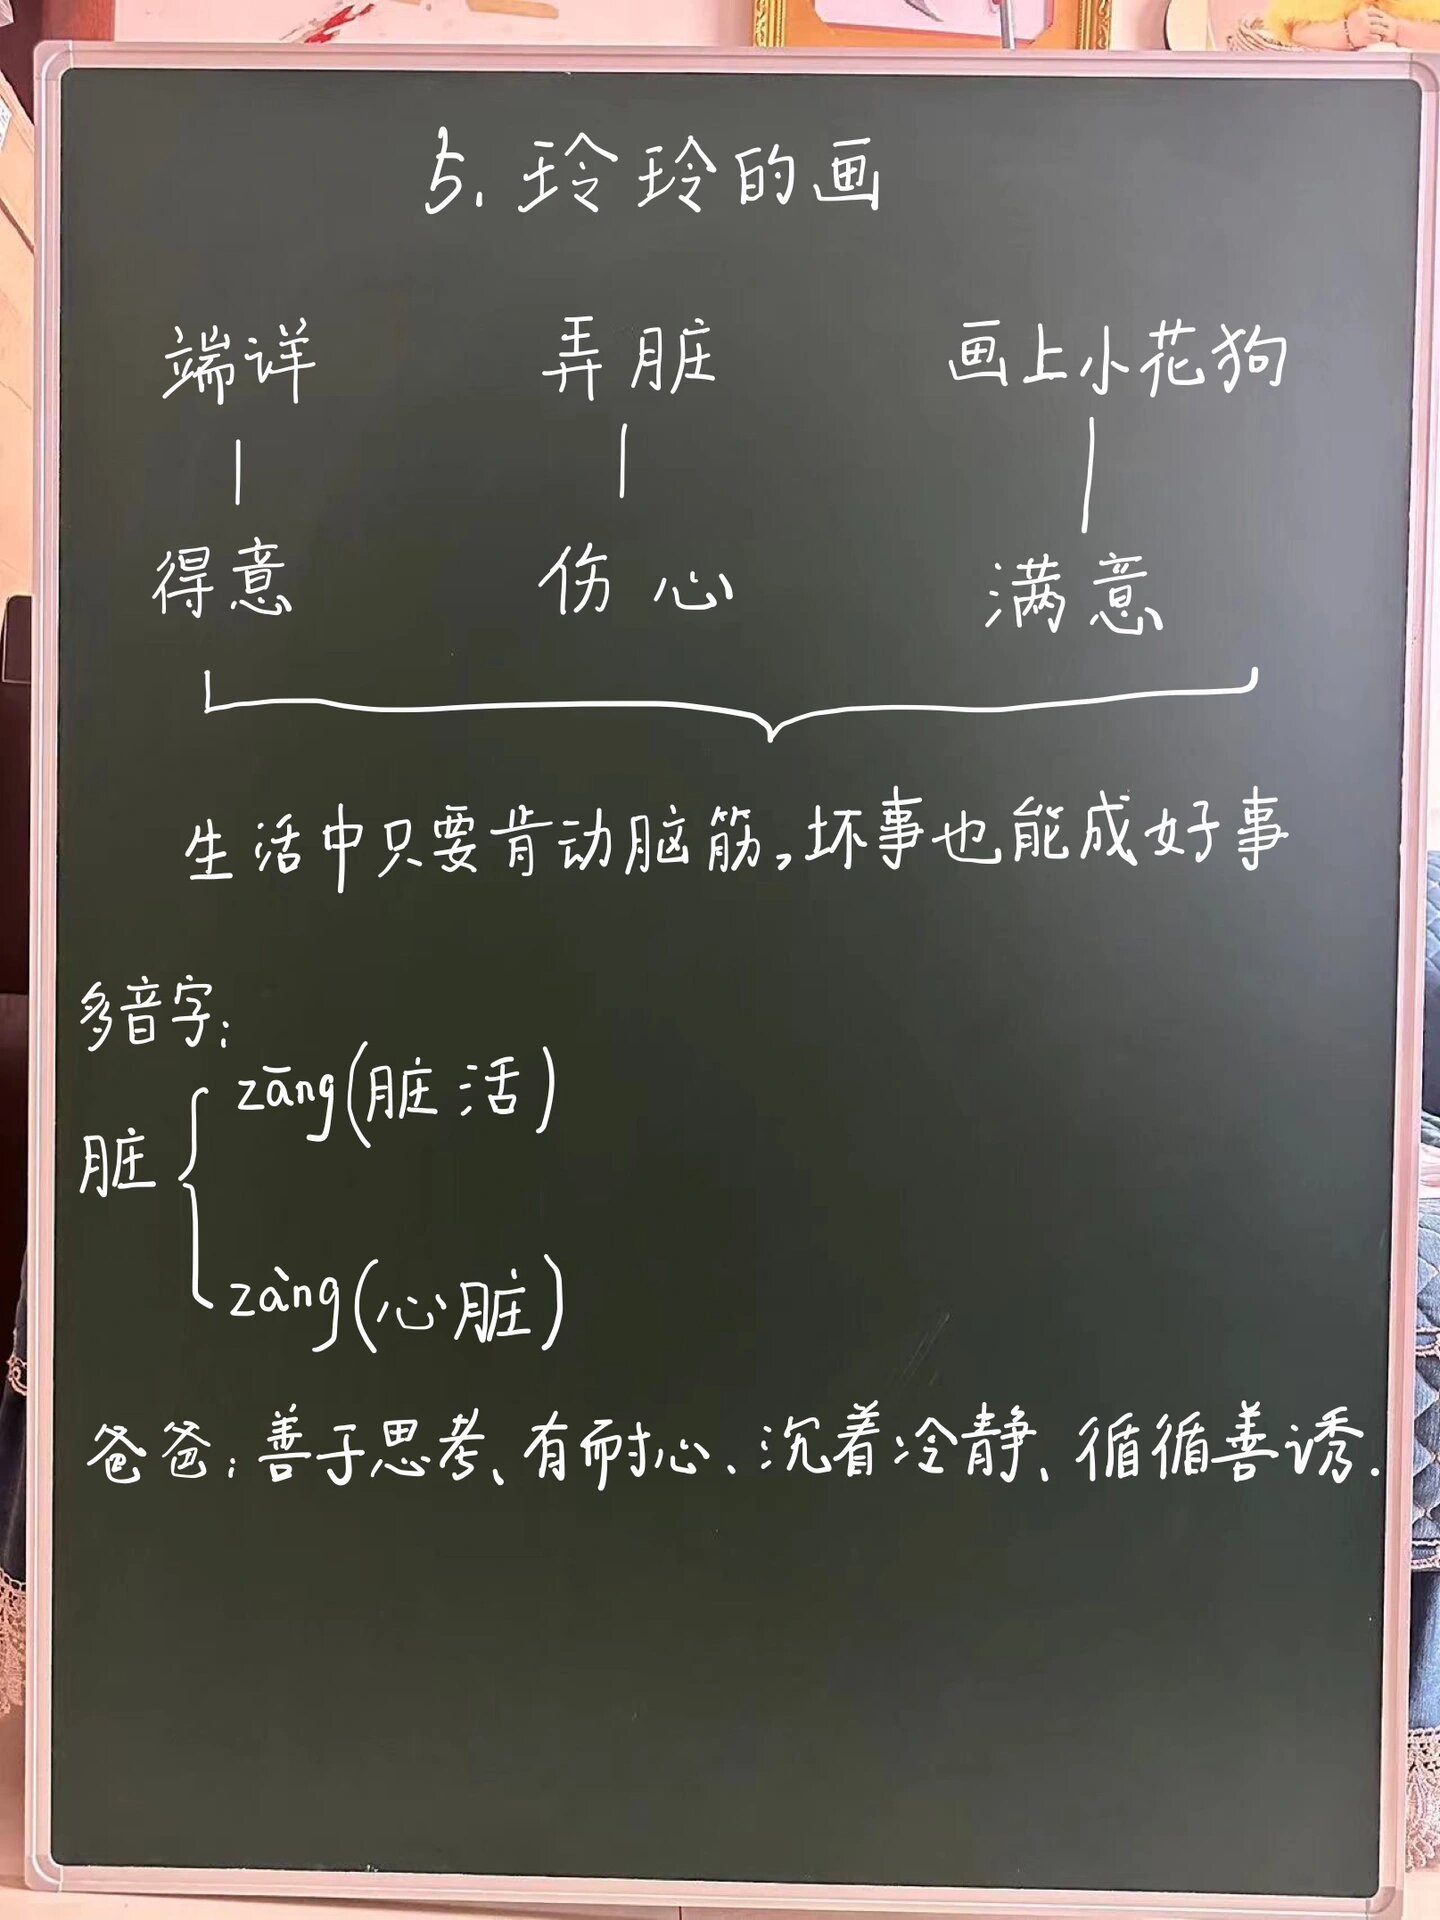 5. 玲玲的画
端详 弄脏 画上小花狗
得意 伤心 满意
生活中只要肯动脑筋,坏事也能成好事
多音字:
zāng(脏活)
脏
zàng(心脏)
爸爸:善于思考、有耐心、沉着冷静、循循善诱.